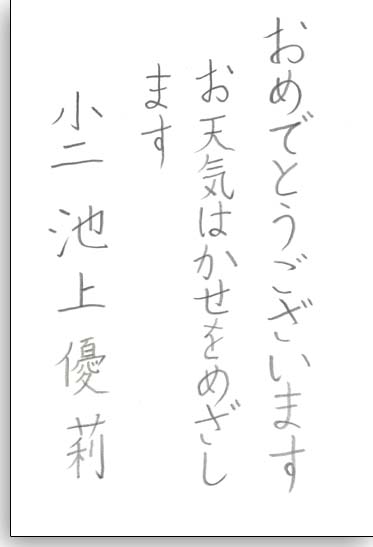 おめでとうございます
お天気はかせをめざし
ます
小二 池上優莉